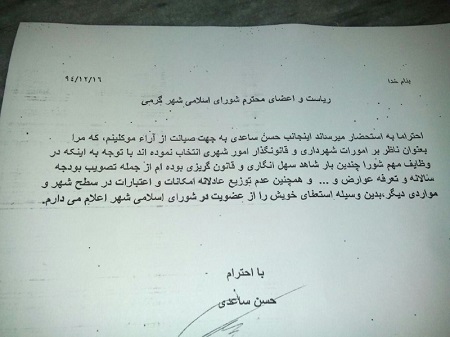 بنام خدا
۹۴/۱۲/۱۶
ریاست و اعضای محترم شورای اسلامی شهر گرمی
احتراما به استحضار میرساند اینجانب حسن ساعدی به جهت صیانت از آراء موکلینم، که مرا
بعنوان ناظر بر امورات شهرداری و قانونگذار امور شهری انتخاب نموده اند با توجه به اینکه در
وظایف مهم شورا چندین بار شاهد سهل انگاری و قانون گریزی بوده ام از جمله تصویب بودجه
سالانه و تعرفه عوارض و ... و همچنین عدم توزیع عادلانه امکانات و اعتبارات در سطح شهر و
مواردی دیگر،بدین وسیله استعفای خویش را از عضویت در شورای اسلامی شهر اعلام می دارم.
با احترام
حسن ساعدی